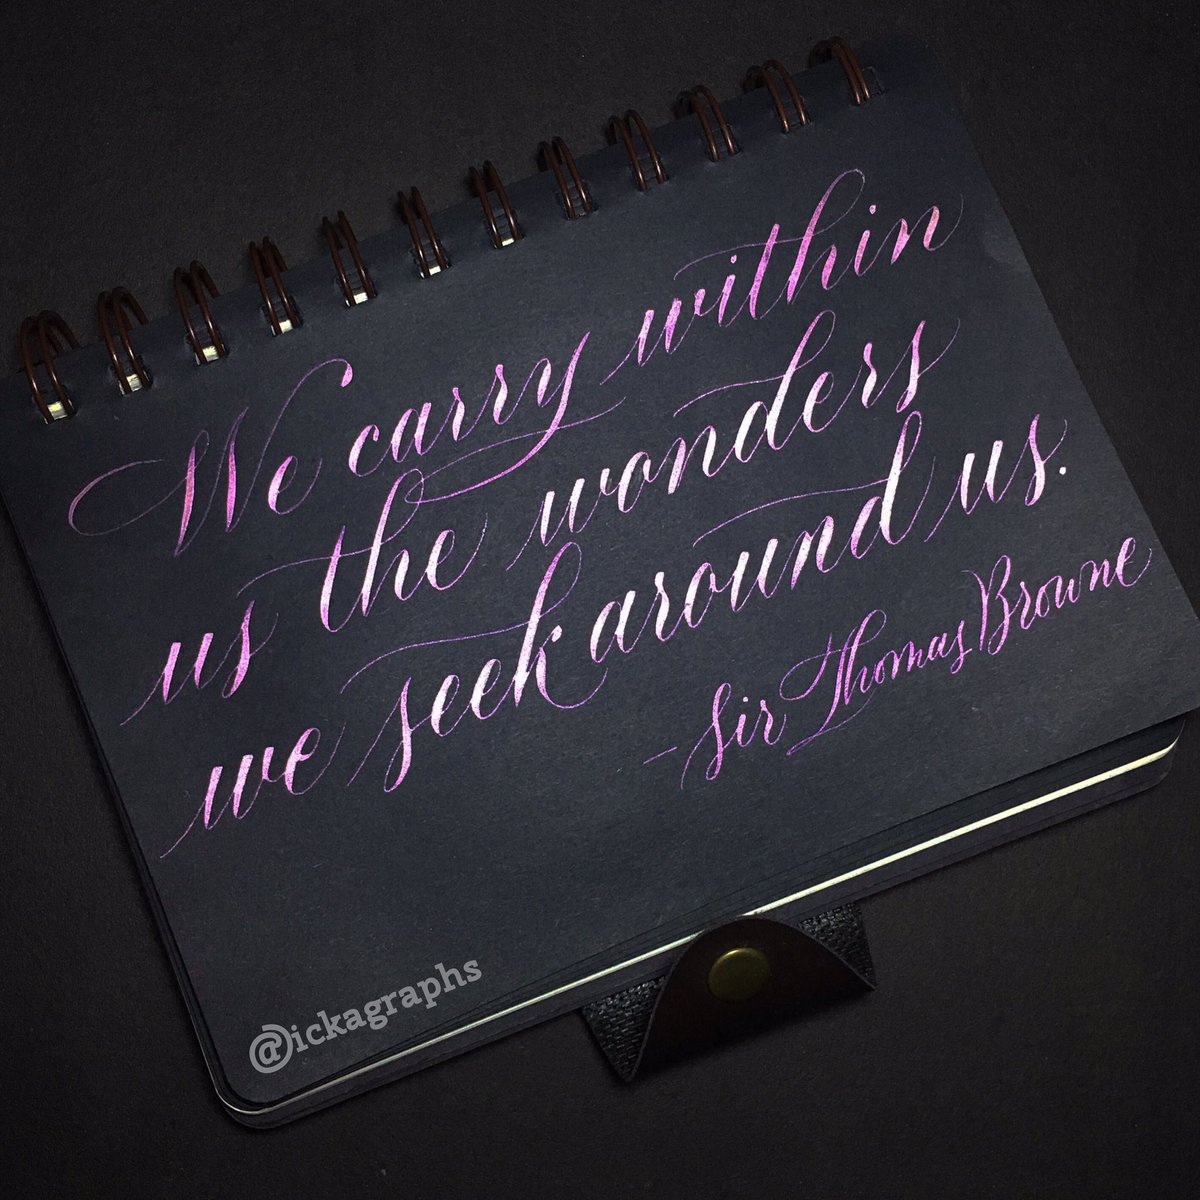 We carry within
us the wonders
we seek around us.
- Sir Thomas Browne
@ickagraphs